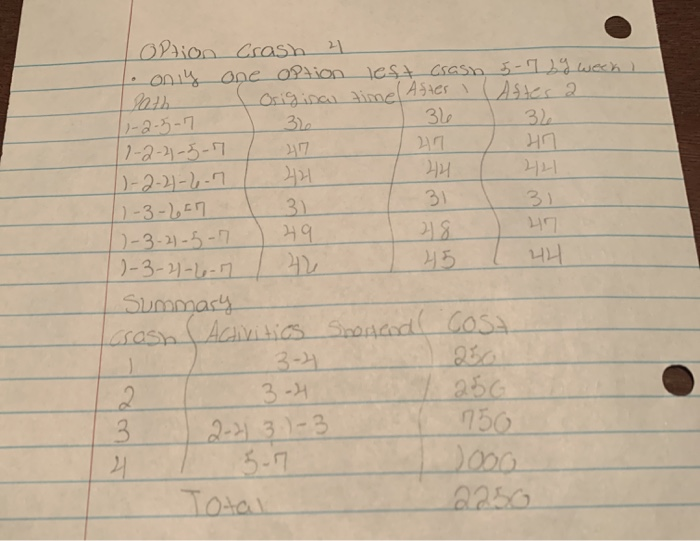 Option Crash 4
• only one option left crash 5-7 by week 1
Path Original time After 1 After 2
1-2-5-7 36 36 36
1-2-4-5-7 47 47 47
1-2-4-6-7 44 44 44
1-3-6-7 31 31 31
1-3-4-5-7 49 48 47
1-3-4-6-7 46 45 44
Summary
Crash Activities Shortend Cost
1 3-4 250
2 3-4 250
3 2-4 3 1-3 750
4 5-7 1000
Total 2250